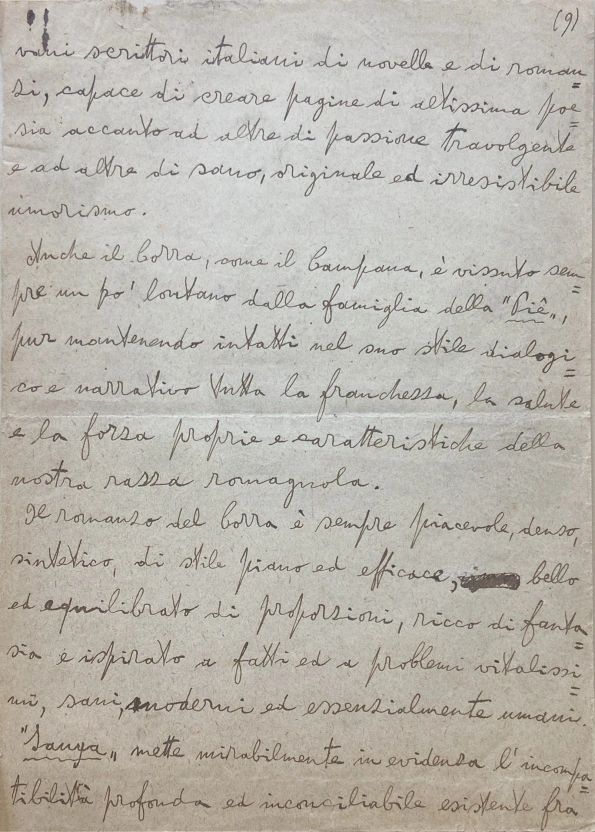 (9)
vani scrittori italiani di novelle e di roman=
zi, capace di creare pagine di altissima poe=
sia accanto ad altre di passione travolgente
e ad altre di sano, originale ed irresistibile
umorismo.
Anche il Corra, come il Campana, è vissuto sem=
pre un po' lontano dalla famiglia della "Piê",
pur mantenendo intatti nel suo stile dialogi=
co e narrativo tutta la franchezza, la salute
e la forza proprie e caratteristiche della
nostra razza romagnola.
Il romanzo del Corra è sempre piacevole, denso,
sintetico, di stile piano ed efficace, bello
ed equilibrato di proporzioni, ricco di fanta=
sia e ispirato a fatti ed a problemi vitalissi=
mi, sani, moderni ed essenzialmente umani.
"Sanya" mette mirabilmente in evidenza l'incompa=
tibilità profonda ed inconciliabile esistente fra